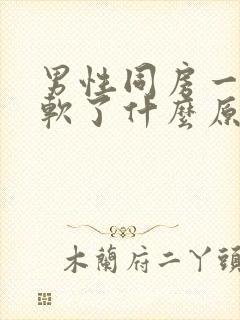 男性同房一
軟了什麼原
木蘭府二丫頭